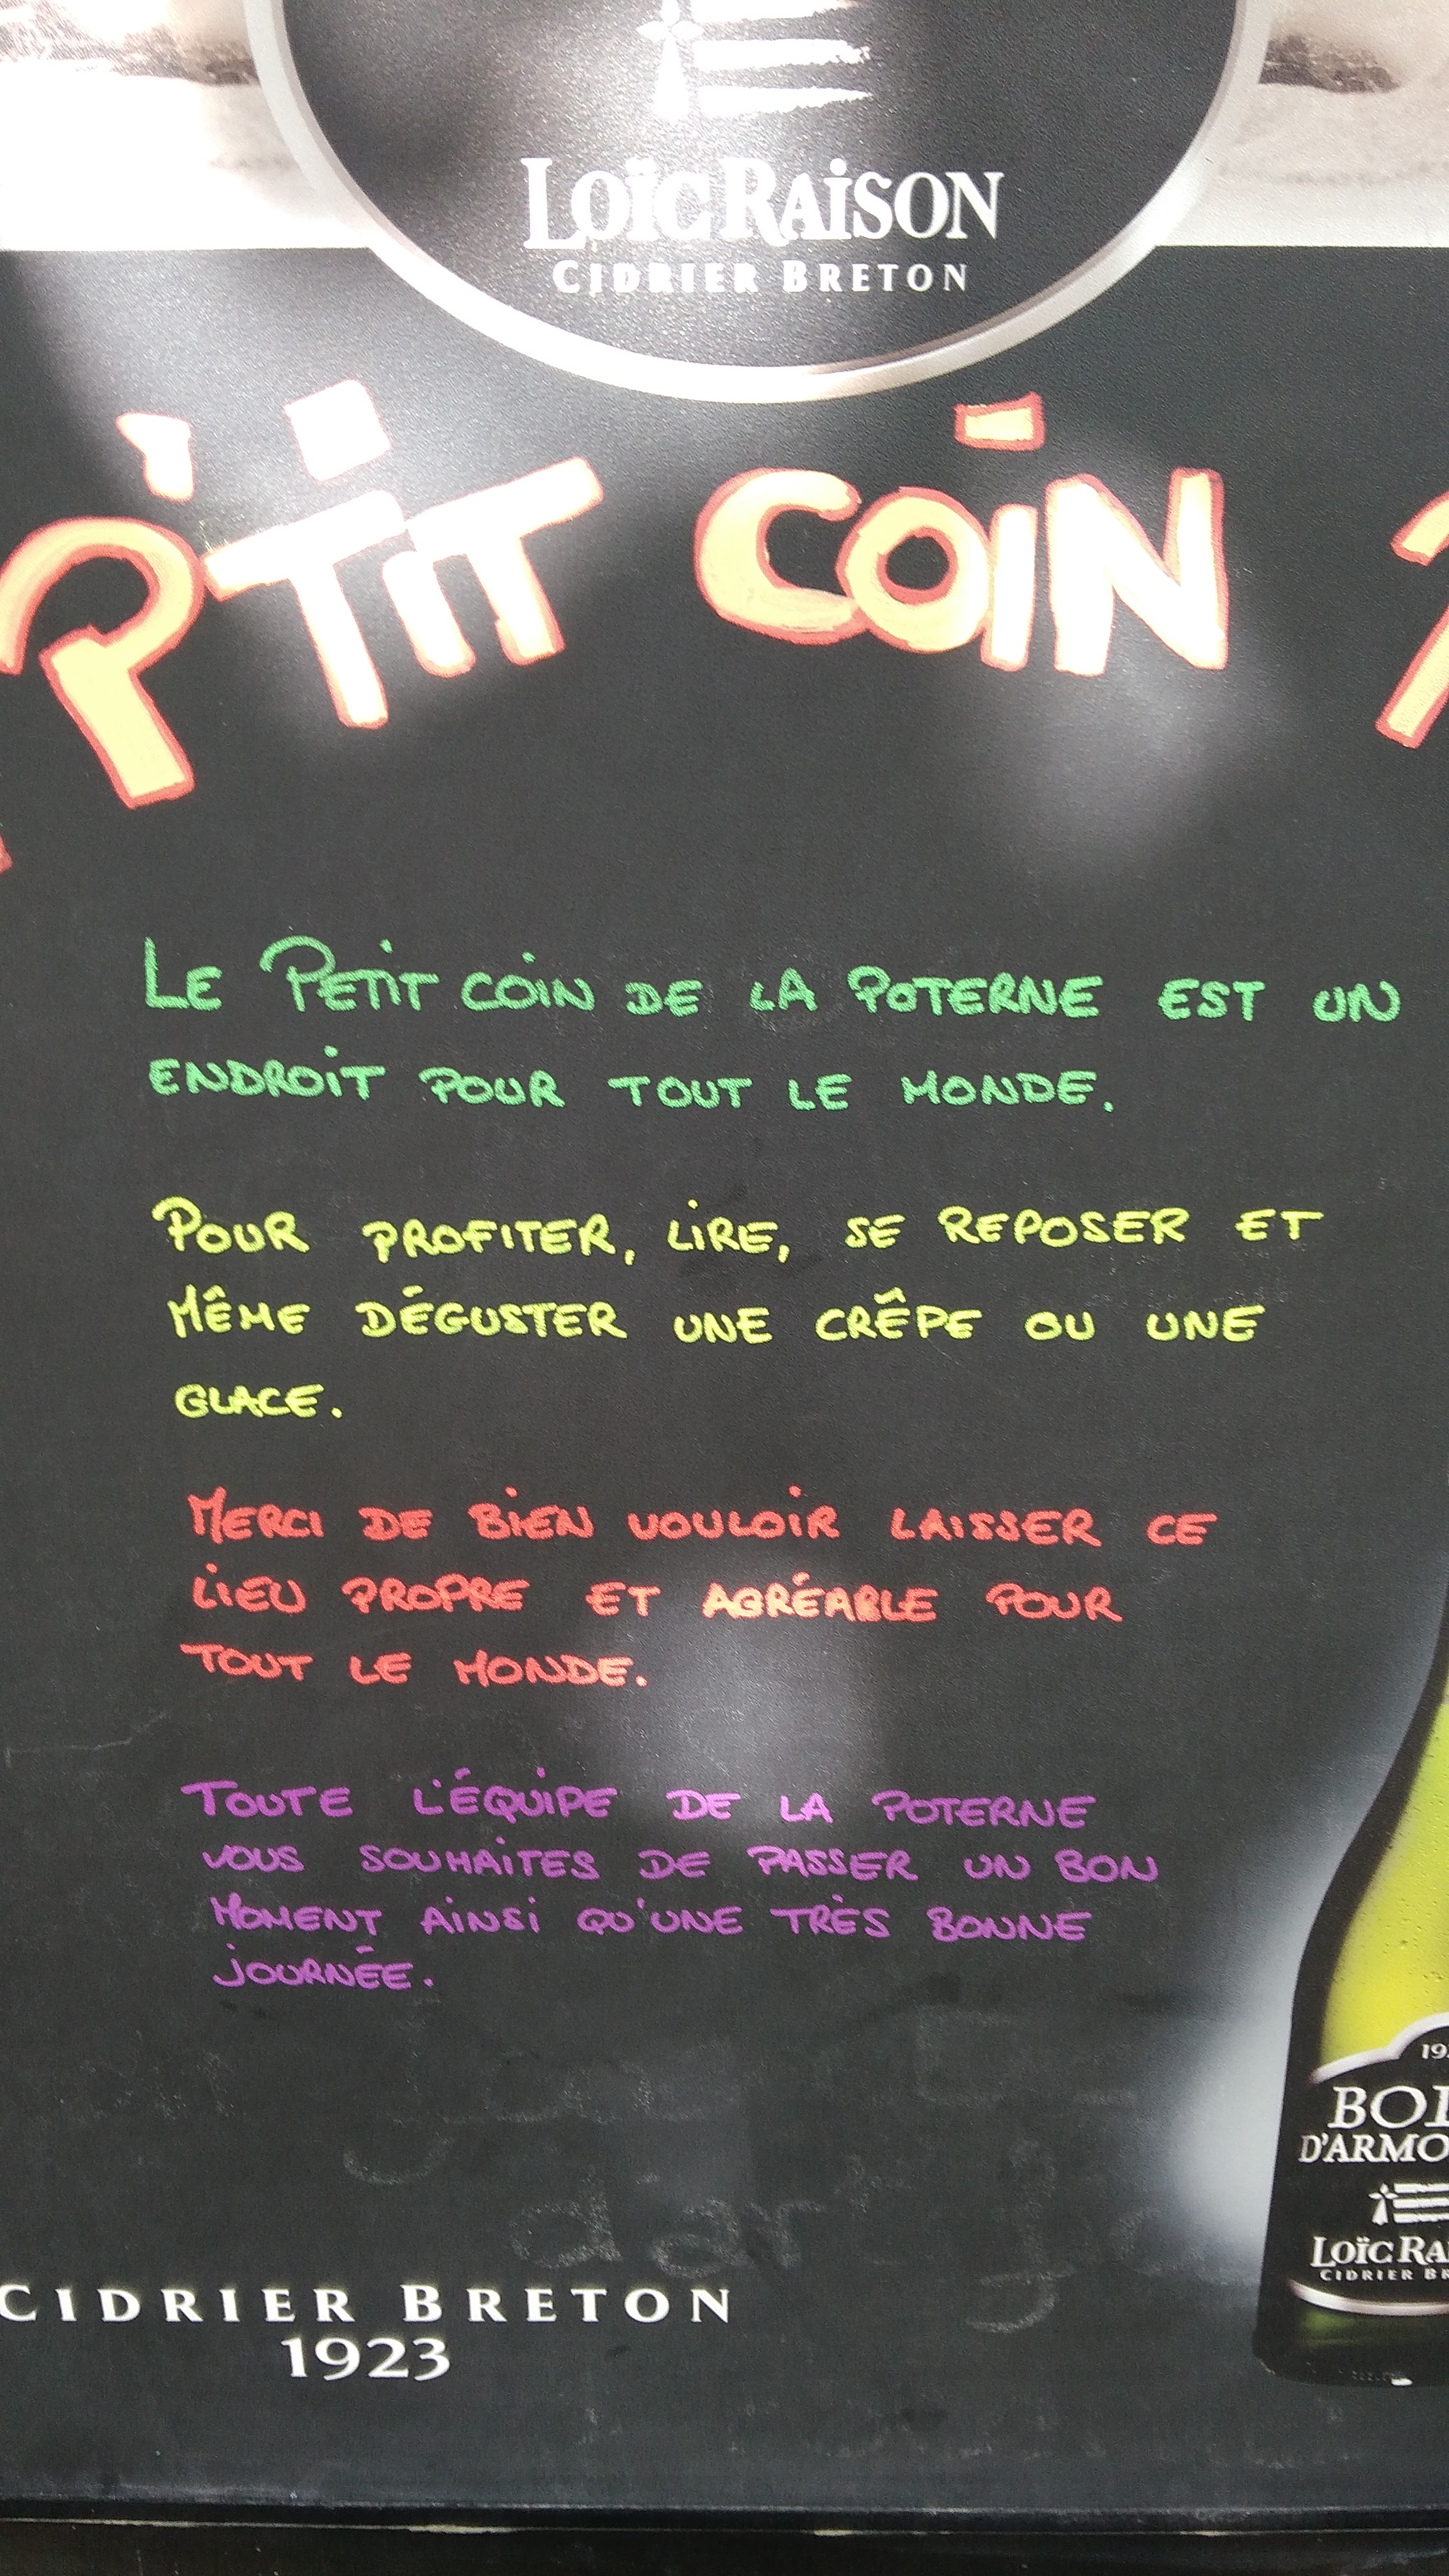 LOÏC RAISON
CIDRIER BRETON
P'TIT COIN
LE PETIT COIN DE LA POTERNE EST UN
ENDROIT POUR TOUT LE MONDE.
POUR PROFITER, LIRE, SE REPOSER ET
MÊME DÉGUSTER UNE CRÊPE OU UNE
GLACE.
MERCI DE BIEN VOULOIR LAISSER CE
LIEU PROPRE ET AGRÉABLE POUR
TOUT LE MONDE.
TOUTE L'ÉQUIPE DE LA POTERNE
VOUS SOUHAITES DE PASSER UN BON
MOMENT AINSI QU'UNE TRÈS BONNE
JOURNÉE.
CIDRIER BRETON
1923
LOÏC
CIDRIER